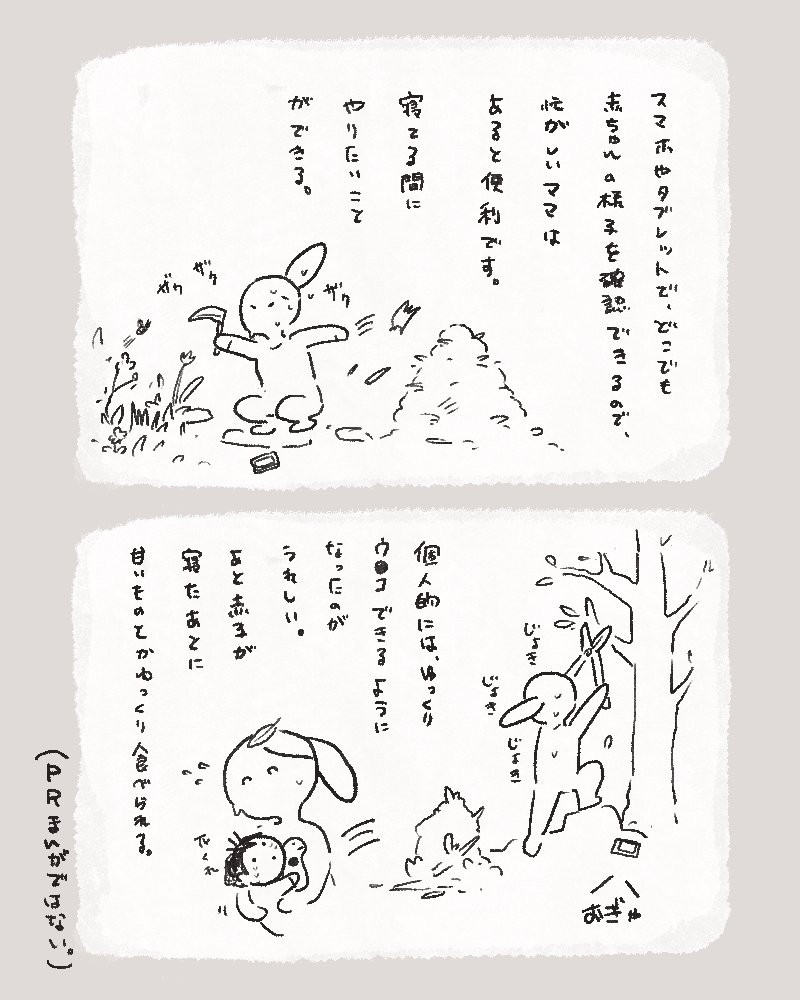 スマホやタブレットで、どこでも
赤ちゃんの様子を確認できるので、
忙がしいママは
あると便利です。
寝てる間に
やりたいこと
ができる。
ザク
ザク
ザク
個人的には、ゆっくり
ウ●コできるように
なったのが
うれしい。
あと赤子が
寝たあとに
甘いものとかゆっくり食べられる。
じょき
じょき
じょき
おぎゃ
(PRまんがではない。)